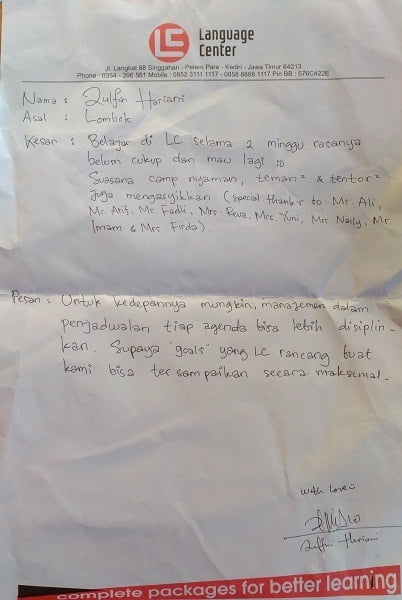 LC Language
Center
Jl. Langkat 88 Singgahan - Pelem Pare - Kediri - Jawa Timur 64213
Phone : 0354 - 396 561 Mobile : 0852 3111 1117 - 0858 8888 1117 Pin BB : 576C422E
Nama : Zulfin Hariani
Asal : Lombok
Kesan : Belajar di LC selama 2 minggu rasanya
belum cukup dan mau lagi :D
Suasana camp nyaman, teman² & tentor²
juga mengasyikkan (special thanks to Mr. Ali,
Mr. Arif, Mr. Fadli, Mrs. Reva, Mrs. Yuni, Mrs. Naily, Mr
Imam & Mrs Firda).
Pesan : Untuk kedepannya mungkin, manajemen dalam
penjadwalan tiap agenda bisa lebih disiplin-
kan. Supaya "goals" yang LC rancang buat
kami bisa tersampaikan secara maksimal.
With Love
Zulfin Hariani
complete packages for better learning